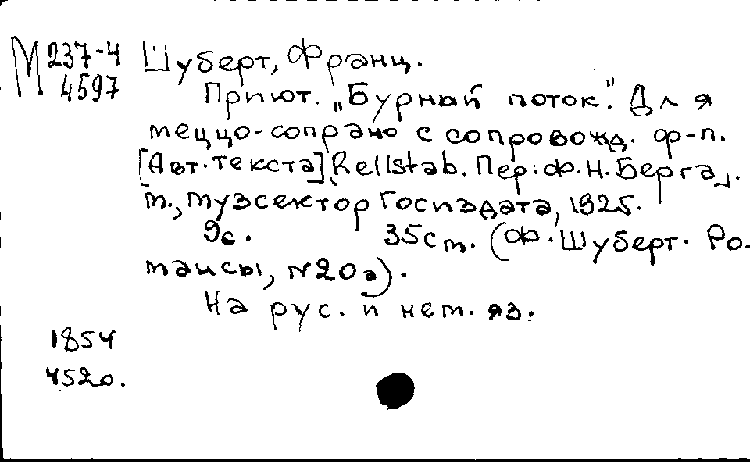 М 237-4 Шуберт, Франц.
4597
Приют. "Бурный поток". Для
меццо-сопрано с сопровожд. ф-п.
[Авт. текста] Rellstab. Пер. Ф.Н. Берга.
М., Музсектор Госиздата, 1925.
9с. 35см. (Ф. Шуберт. Ро-
мансы, №20а).
На рус. и нем. яз.
1854
4520.